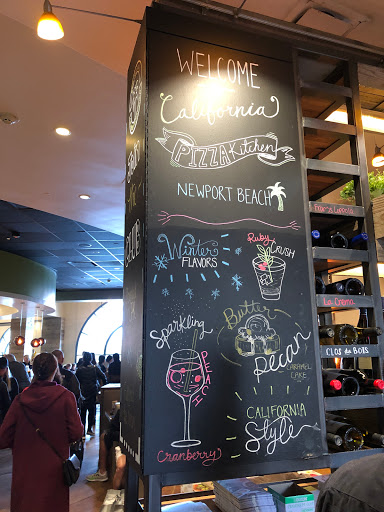 WELCOME
California
PIZZA Kitchen
NEWPORT BEACH
Winter
FLAVORS
Ruby
CRUSH
Sparkling
PEACH
Cranberry
Butter
PECAN
CARAMEL
CAKE
CALIFORNIA
Style
La Crema
CLOS du BOIS